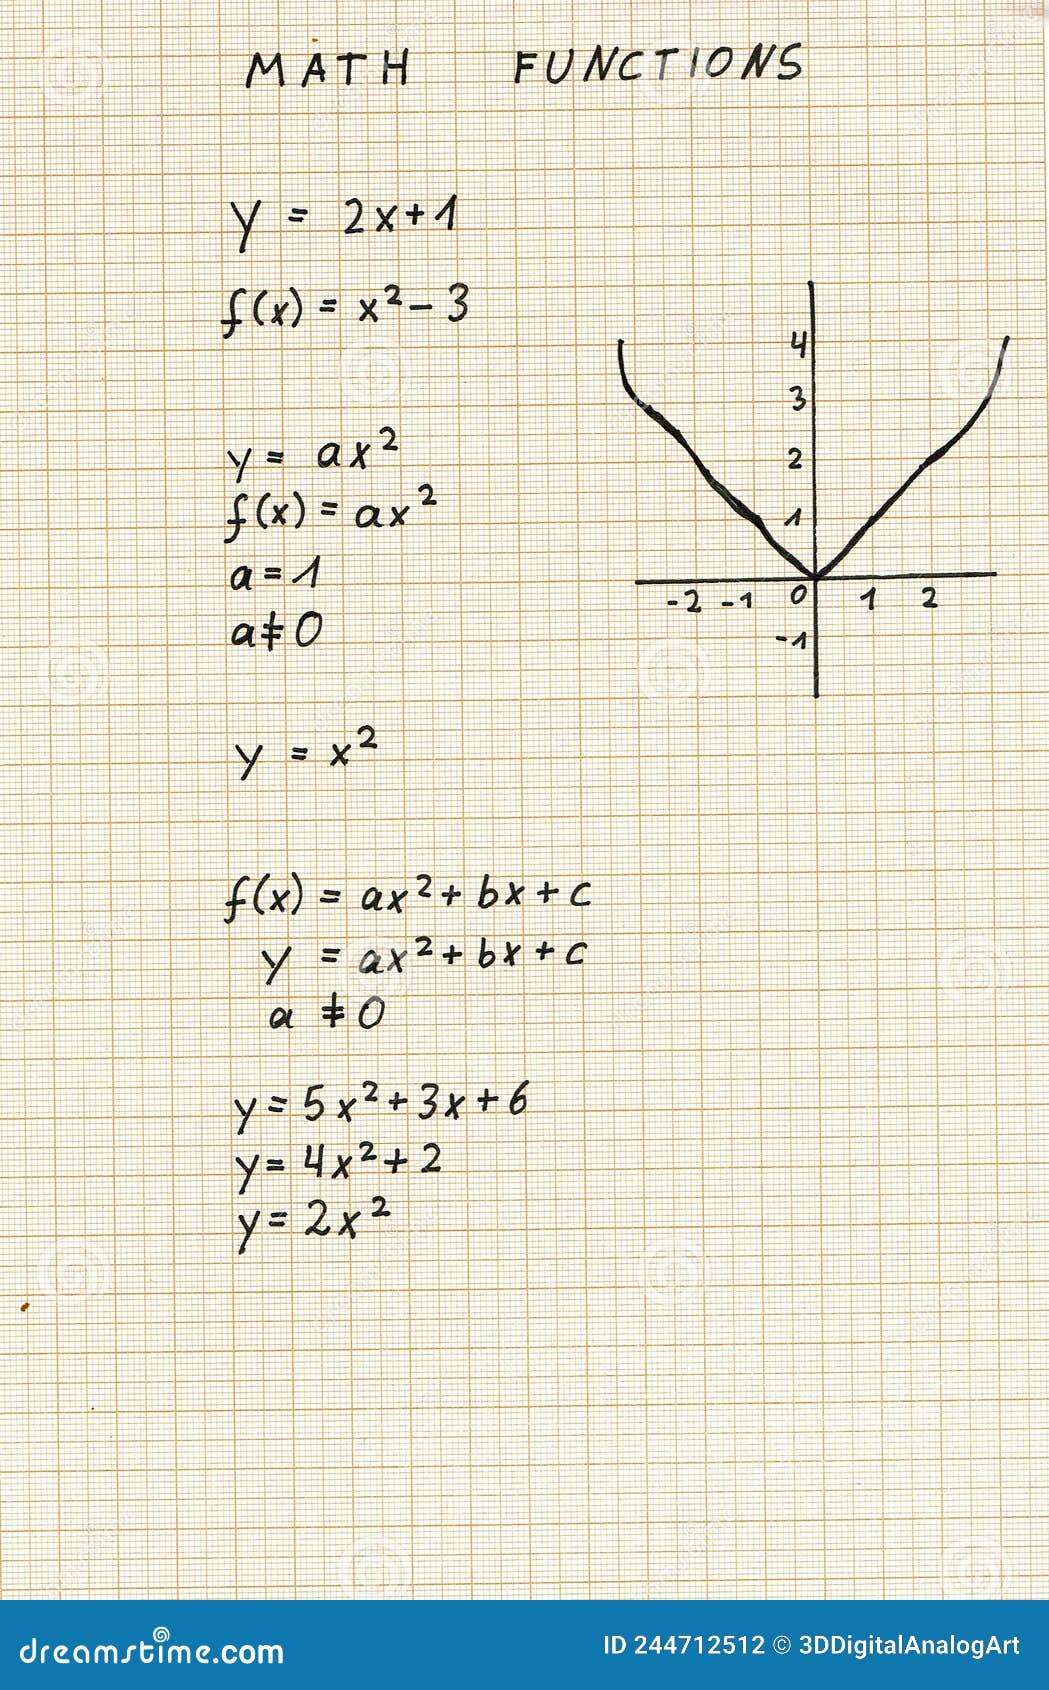 MATH FUNCTIONS
y = 2x+1
f(x) = x² - 3
y = ax²
f(x) = ax²
a = 1
a ≠ 0
y = x²
4
3
2
1
-2 -1 0 1 2
-1
f(x) = ax² + bx + c
y = ax² + bx + c
a ≠ 0
y = 5x² + 3x + 6
y = 4x² + 2
y = 2x²
dreamstime.com
ID 244712512 © 3DDigitalAnalogArt